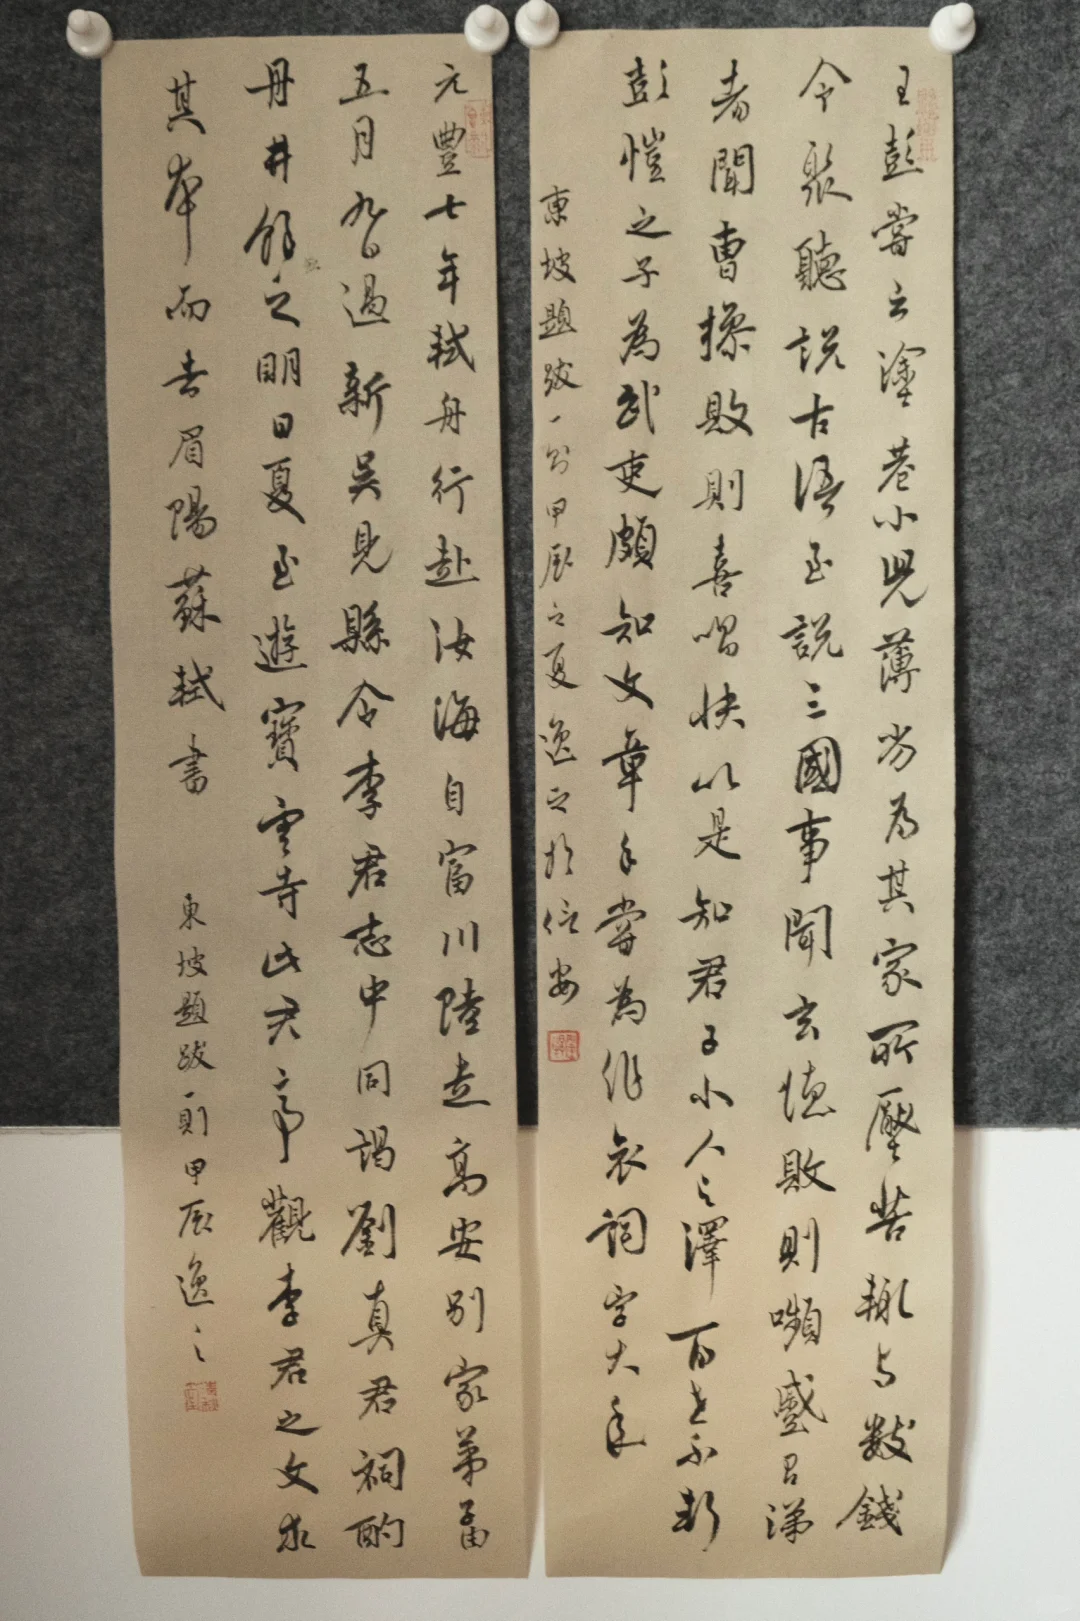 王彭嘗云塗巷小兒薄劣為其家所壓苦輒与数錢
令聚聽説古語至説三國事聞玄德敗則嚬蹙涕
者聞曹操敗則喜唱快以是知君子小人之澤百世不斬
彭愷之子為武吏頗知文章余嘗為作哀詞字大年
東坡題跋一則甲辰之夏逸之於信安
元豐七年軾舟行赴汝海自富川陸走高安別家弟子由
五月九日過新吳見縣令李君志中同謁劉真君祠酌
丹井餘之明日夏至遊寶雲寺此君亭觀李君之文求
其本而去眉陽蘇軾書
東坡題跋一則甲辰逸之